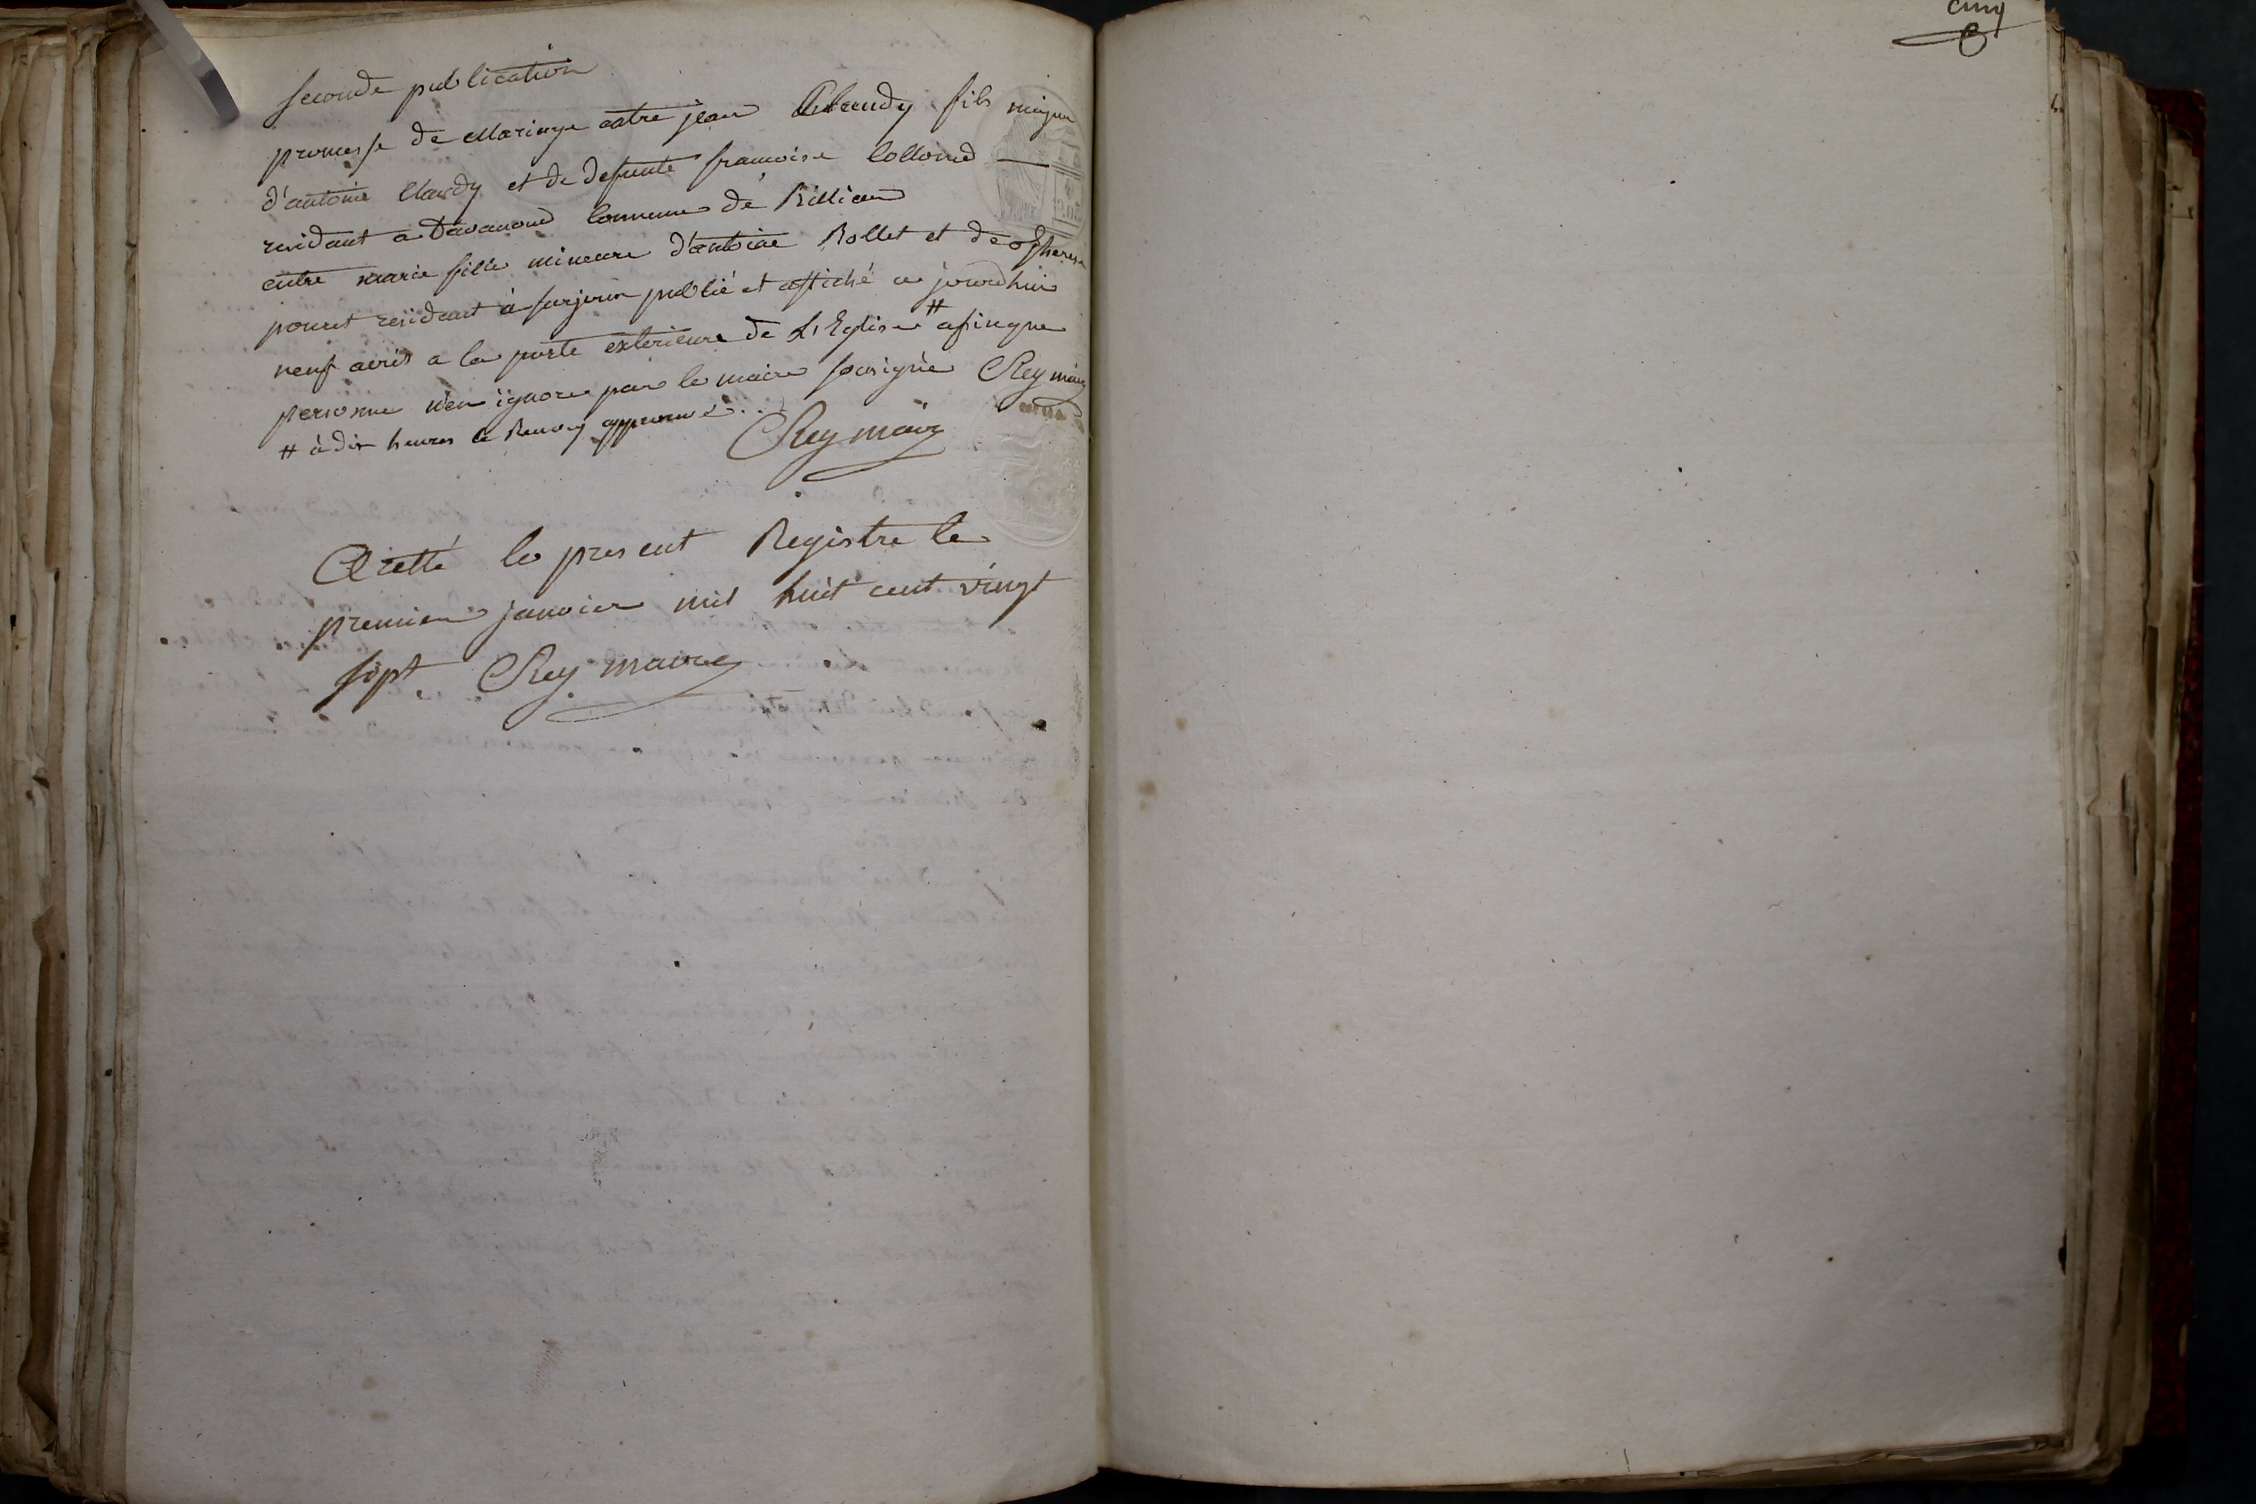 seconde publication
promesse de Mariage entre jean Claudy fils majeur
d'antoine Claudy et de defunte francoise Collomd
residant a Davanoud Commune de Billieu
entre marie fille mineure d'antoine Rollet et de Therese
pouret residant à surjoux publié et affiché ce jourdhui
neuf avril a la porte exterieure de L'Eglise # afinque
personne n'en ignore par le maire sousigné Rey maire
# à dix heures le Renvoy approuvé
Rey maire
Aretté le present Registre le
premier janvier mil huit cent vingt
sept Rey maire
cinq